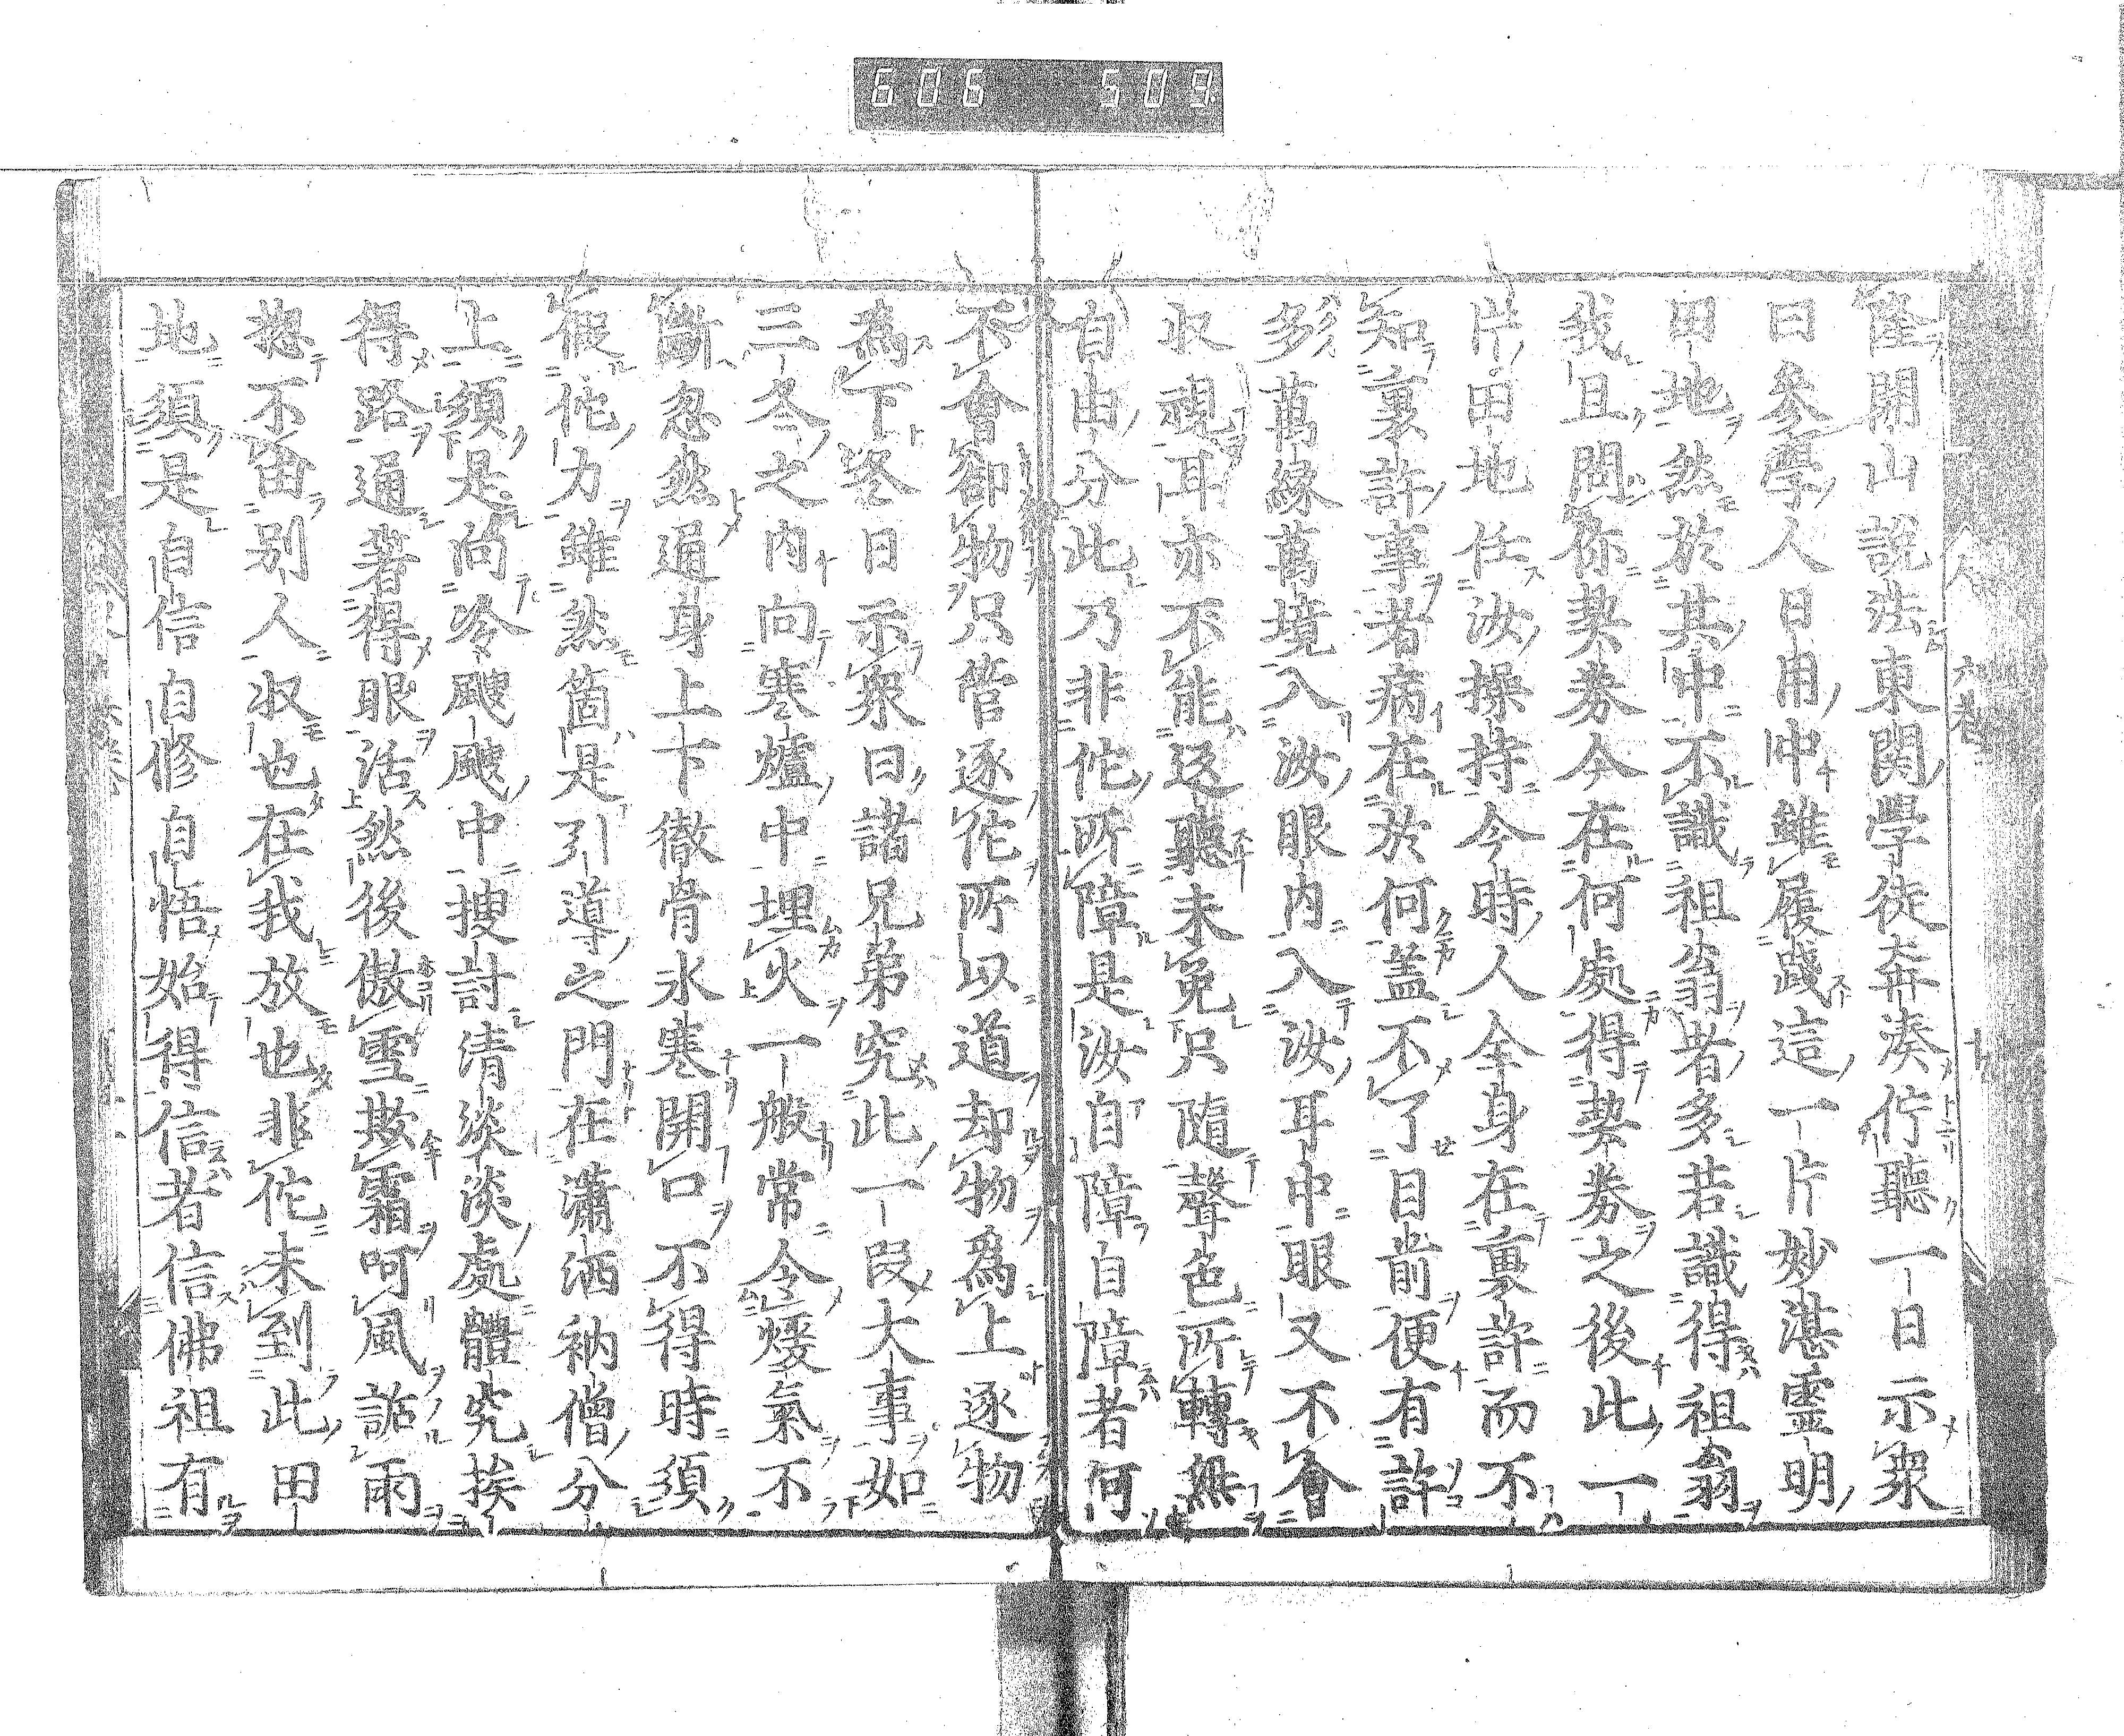 606 509
隆開山說法東關學徒奔湊佇聽一日示衆
曰參學人日用中雖履踐這一片妙湛靈明
田地然於其中不識祖翁者多若識得祖翁
我且問你契券今在何處得契券之後此一
片田地任汝操持今時人全身在裏許而不
知裏許事者病在於何蓋不了目前便有許
多萬緣萬境入汝眼內入汝耳中眼又不會
收視耳亦不能返聽未免只隨聲色所轉無
自由分此乃非佗所障是汝自障自障者何
不會卻物只管逐佗所以道却物爲上逐物
爲下冬日示衆曰諸兄弟究此一段大事如
三冬之內向寒爐中埋火一般常令煖氣不
斷忽然通身上下徹骨氷寒開口不得時須
假佗力雖然箇是引導之門在瀟洒衲僧分
上須是向冷颼颼中搜討清淡淡處體究挨
得路通著得眼活然後傲雪欺霜呵風詬雨
揔不由別人収也在我放也非佗未到此田
地須是自信自修自悟始得信者信佛祖有
六卷